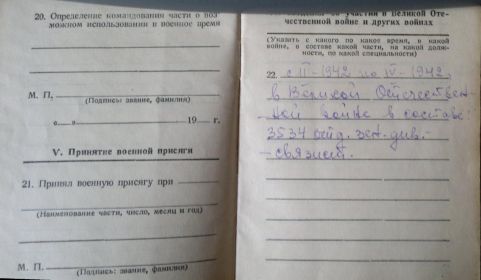 20. Определение командования части о воз-
можном использовании в военное время
М. П.
(Подпись: звание, фамилия)
«__» 19 г.
V. Принятие военной присяги
21. Принял военную присягу при
(Наименование части, число, месяц и год)
М. П.
(Подпись: звание, фамилия)
участии в Великой Оте-
чественной войне и других войнах
(Указать с какого по какое время, в какой
войне, в составе какой части, на какой долж-
ности, по какой специальности)
22. с II-1942 по IV-1942,
в Великой Отечествен-
ной войне в составе:
3534 отд. зен. див. -
- связист.